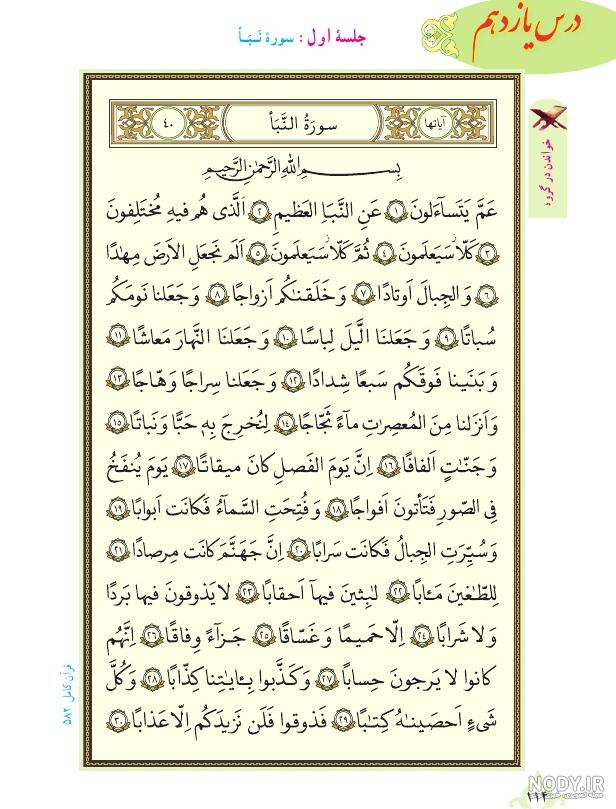 درس یازدهم
جلسهٔ اول : سورهٔ نَبَأ
خواندن در گروه
آیاتها
سورَةُ النَّبَأ
٤٠
بِسمِ اللهِ الرَّحمٰنِ الرَّحيمِ
عَمَّ يَتَسآءَلونَ ١ عَنِ النَّبَاِ العَظيمِ ٢ اَلَّذى هُم فيهِ مُختَلِفونَ
٣ كَلّا سَيَعلَمونَ ٤ ثُمَّ كَلّا سَيَعلَمونَ ٥ اَلَم نَجعَلِ الاَرضَ مِهٰدًا
٦ وَ الجِبالَ اَوتادًا ٧ وَ خَلَقنٰكُم اَزواجًا ٨ وَ جَعَلنا نَومَكُم
سُباتًا ٩ وَ جَعَلنَا الَّيلَ لِباسًا ١٠ وَ جَعَلنَا النَّهارَ مَعاشًا ١١
وَ بَنَينا فَوقَكُم سَبعًا شِدادًا ١٢ وَ جَعَلنا سِراجًا وَهّاجًا ١٣
وَ اَنزَلنا مِنَ المُعصِراتِ مآءً ثَجّاجًا ١٤ لِنُخرِجَ بِه حَبًّا وَ نَباتًا ١٥
وَ جَنّٰتٍ اَلفافًا ١٦ اِنَّ يَومَ الفَصلِ كانَ ميقاتًا ١٧ يَومَ يُنفَخُ
فِى الصّورِ فَتَأتونَ اَفواجًا ١٨ وَ فُتِحَتِ السَّمآءُ فَكانَت اَبوابًا ١٩
وَ سُيِّرَتِ الجِبالُ فَكانَت سَرابًا ٢٠ اِنَّ جَهَنَّمَ كانَت مِرصادًا ٢١
لِلطّٰغينَ مَـٔابًا ٢٢ لٰبِثينَ فيهآ اَحقابًا ٢٣ لا يَذوقونَ فيها بَردًا
وَ لا شَرابًا ٢٤ اِلّا حَميمًا وَ غَسّاقًا ٢٥ جَزآءً وِفاقًا ٢٦ اِنَّهُم
كانوا لا يَرجونَ حِسابًا ٢٧ وَ كَذَّبوا بِـٔايٰتِنا كِذّابًا ٢٨ وَ كُلَّ
شَىءٍ اَحصَينٰهُ كِتٰبًا ٢٩ فَذوقوا فَلَن نَزيدَكُم اِلّا عَذابًا ٣٠
قرآن کامل ۵۸۲
NODY.IR